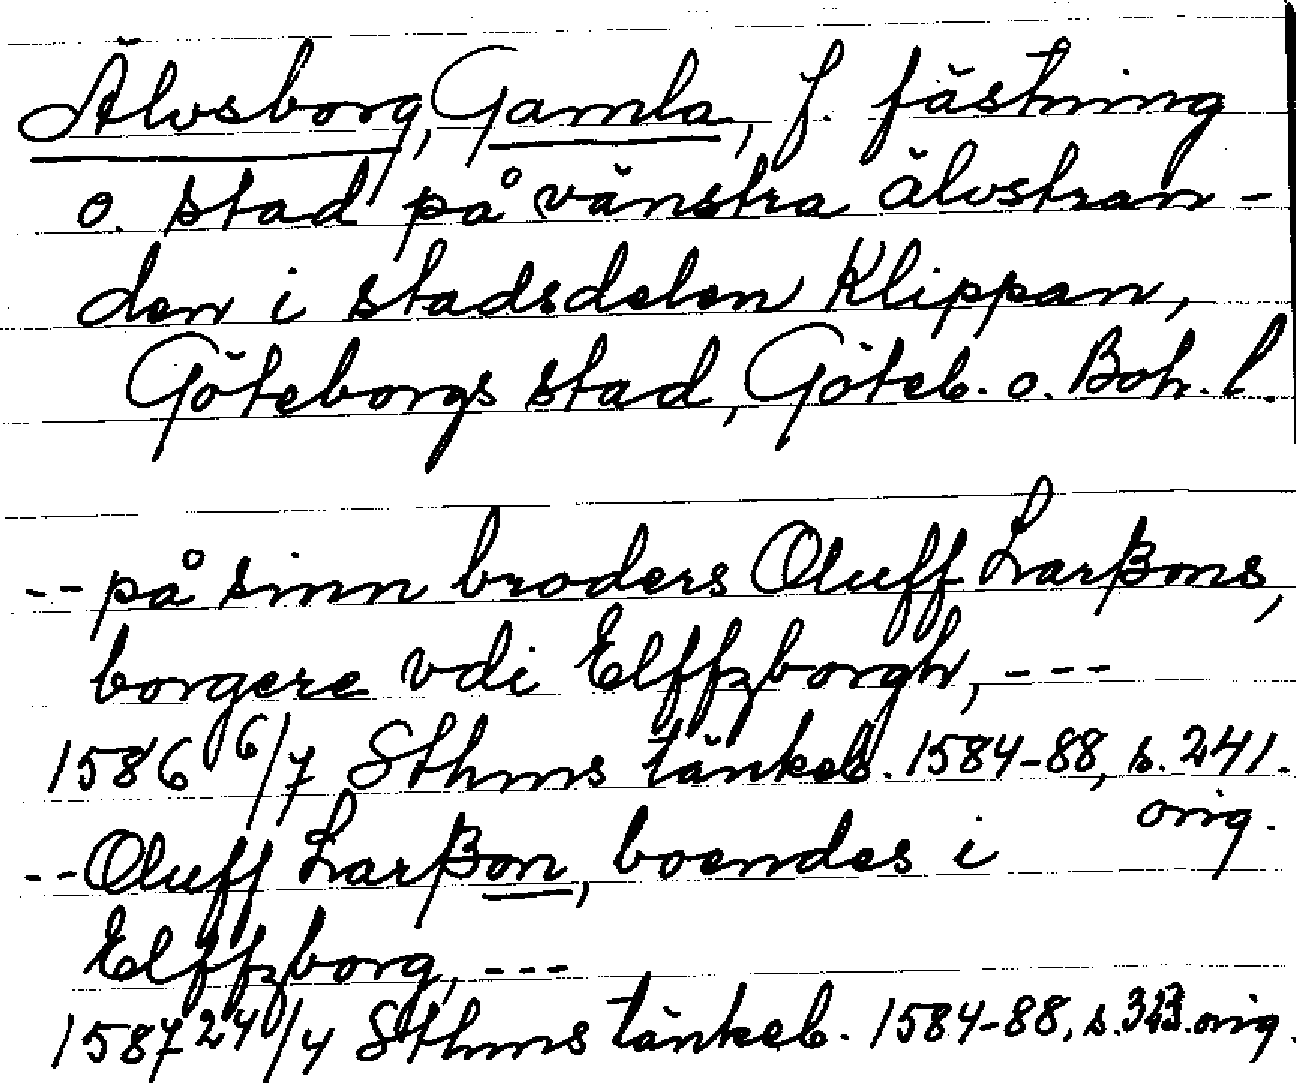 Älvsborg, Gamla, f. fästning
o. stad på vänstra älvstran-
den i stadsdelen Klippan,
Göteborgs stad, Göteb. o. Boh. l.
-- på sinn broders Oluff Larßons,
borgere vdi Elffzborgh, ---
1586 6/7 Sthms tänkeb. 1584-88, s. 241.
orig.
-- Oluff Larßon, boendes i
Elffzborg, ---
1587 24/4 Sthms tänkeb. 1584-88, s. orig.